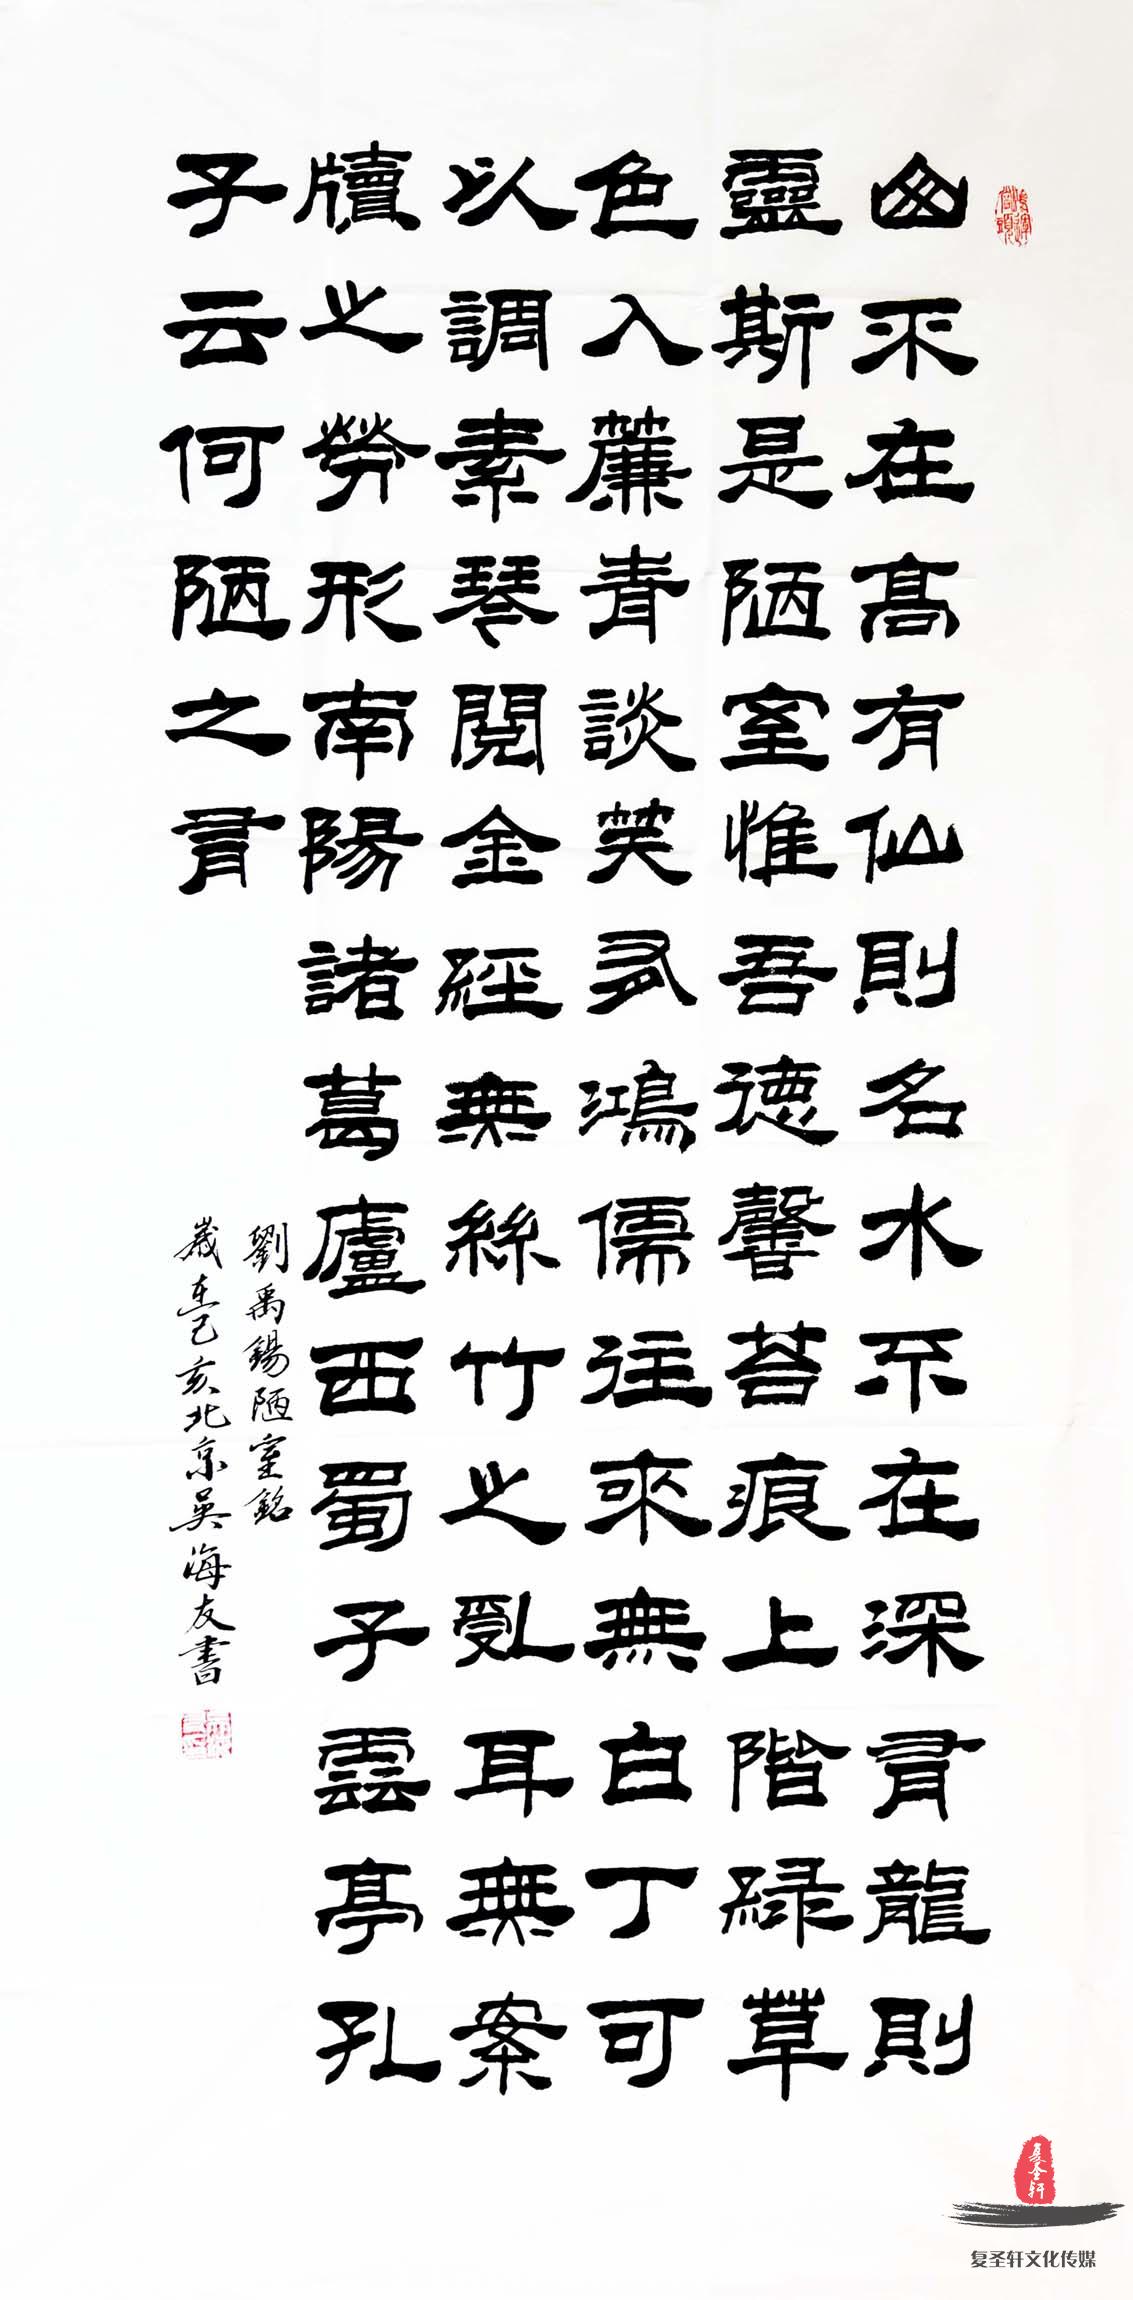 鴻運當頭
山不在高有仙則名水不在深有龍則
靈斯是陋室惟吾德馨苔痕上階緑草
色入簾青談笑有鴻儒往來無白丁可
以調素琴閱金經無絲竹之亂耳無案
牘之勞形南陽諸葛廬西蜀子雲亭孔
子云何陋之有
劉禹錫陋室銘
歲在己亥北京吳海友書
复圣轩
复圣轩文化传媒